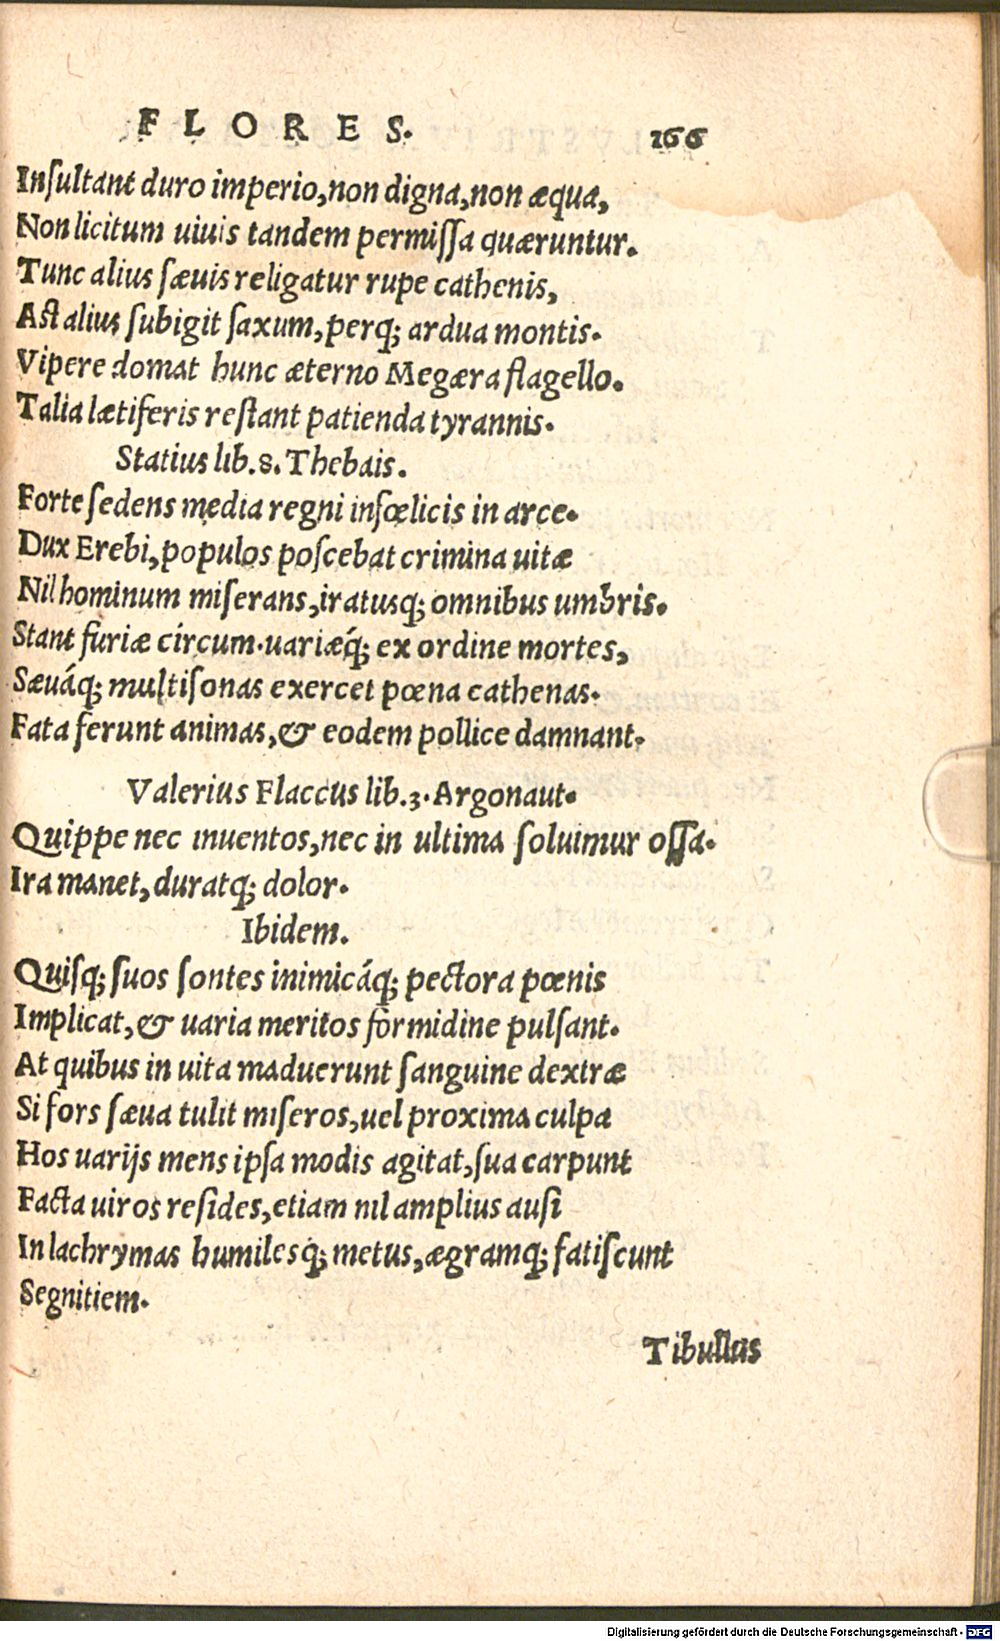 FLORES. 166
Insultant duro imperio, non digna, non æqua,
Non licitum uiuis tandem permissa quæruntur.
Tunc alius sæuis religatur rupe cathenis,
Ast alius subigit saxum, perq; ardua montis.
Vipere domat hunc æterno Megæra flagello.
Talia lætiferis restant patienda tyrannis.
Statius lib. 8. Thebais.
Forte sedens media regni infœlicis in arce.
Dux Erebi, populos poscebat crimina uitæ
Nil hominum miserans, iratusq; omnibus umbris.
Stant furiæ circum. uariæq́; ex ordine mortes,
Sæuáq; multisonas exercet pœna cathenas.
Fata ferunt animas, & eodem pollice damnant.
Valerius Flaccus lib. 3. Argonaut.
Quippe nec inuentos, nec in ultima soluimur ossa.
Ira manet, duratq; dolor.
Ibidem.
Quisq; suos sontes inimicáq; pectora pœnis
Implicat, & uaria meritos formidine pulsant.
At quibus in uita maduerunt sanguine dextræ
Si fors sæua tulit miseros, uel proxima culpa
Hos uarijs mens ipsa modis agitat, sua carpunt
Facta uiros resides, etiam nil amplius ausi
In lachrymas humilesq; metus, ægramq; fatiscunt
Segnitiem.
Tibullus
Digitalisierung gefördert durch die Deutsche Forschungsgemeinschaft - DFG